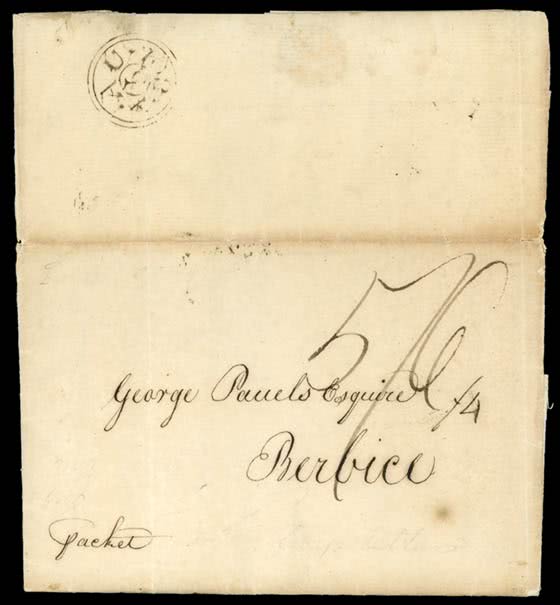 5/6
George Pauels Esquire
/4
Berbice
packet